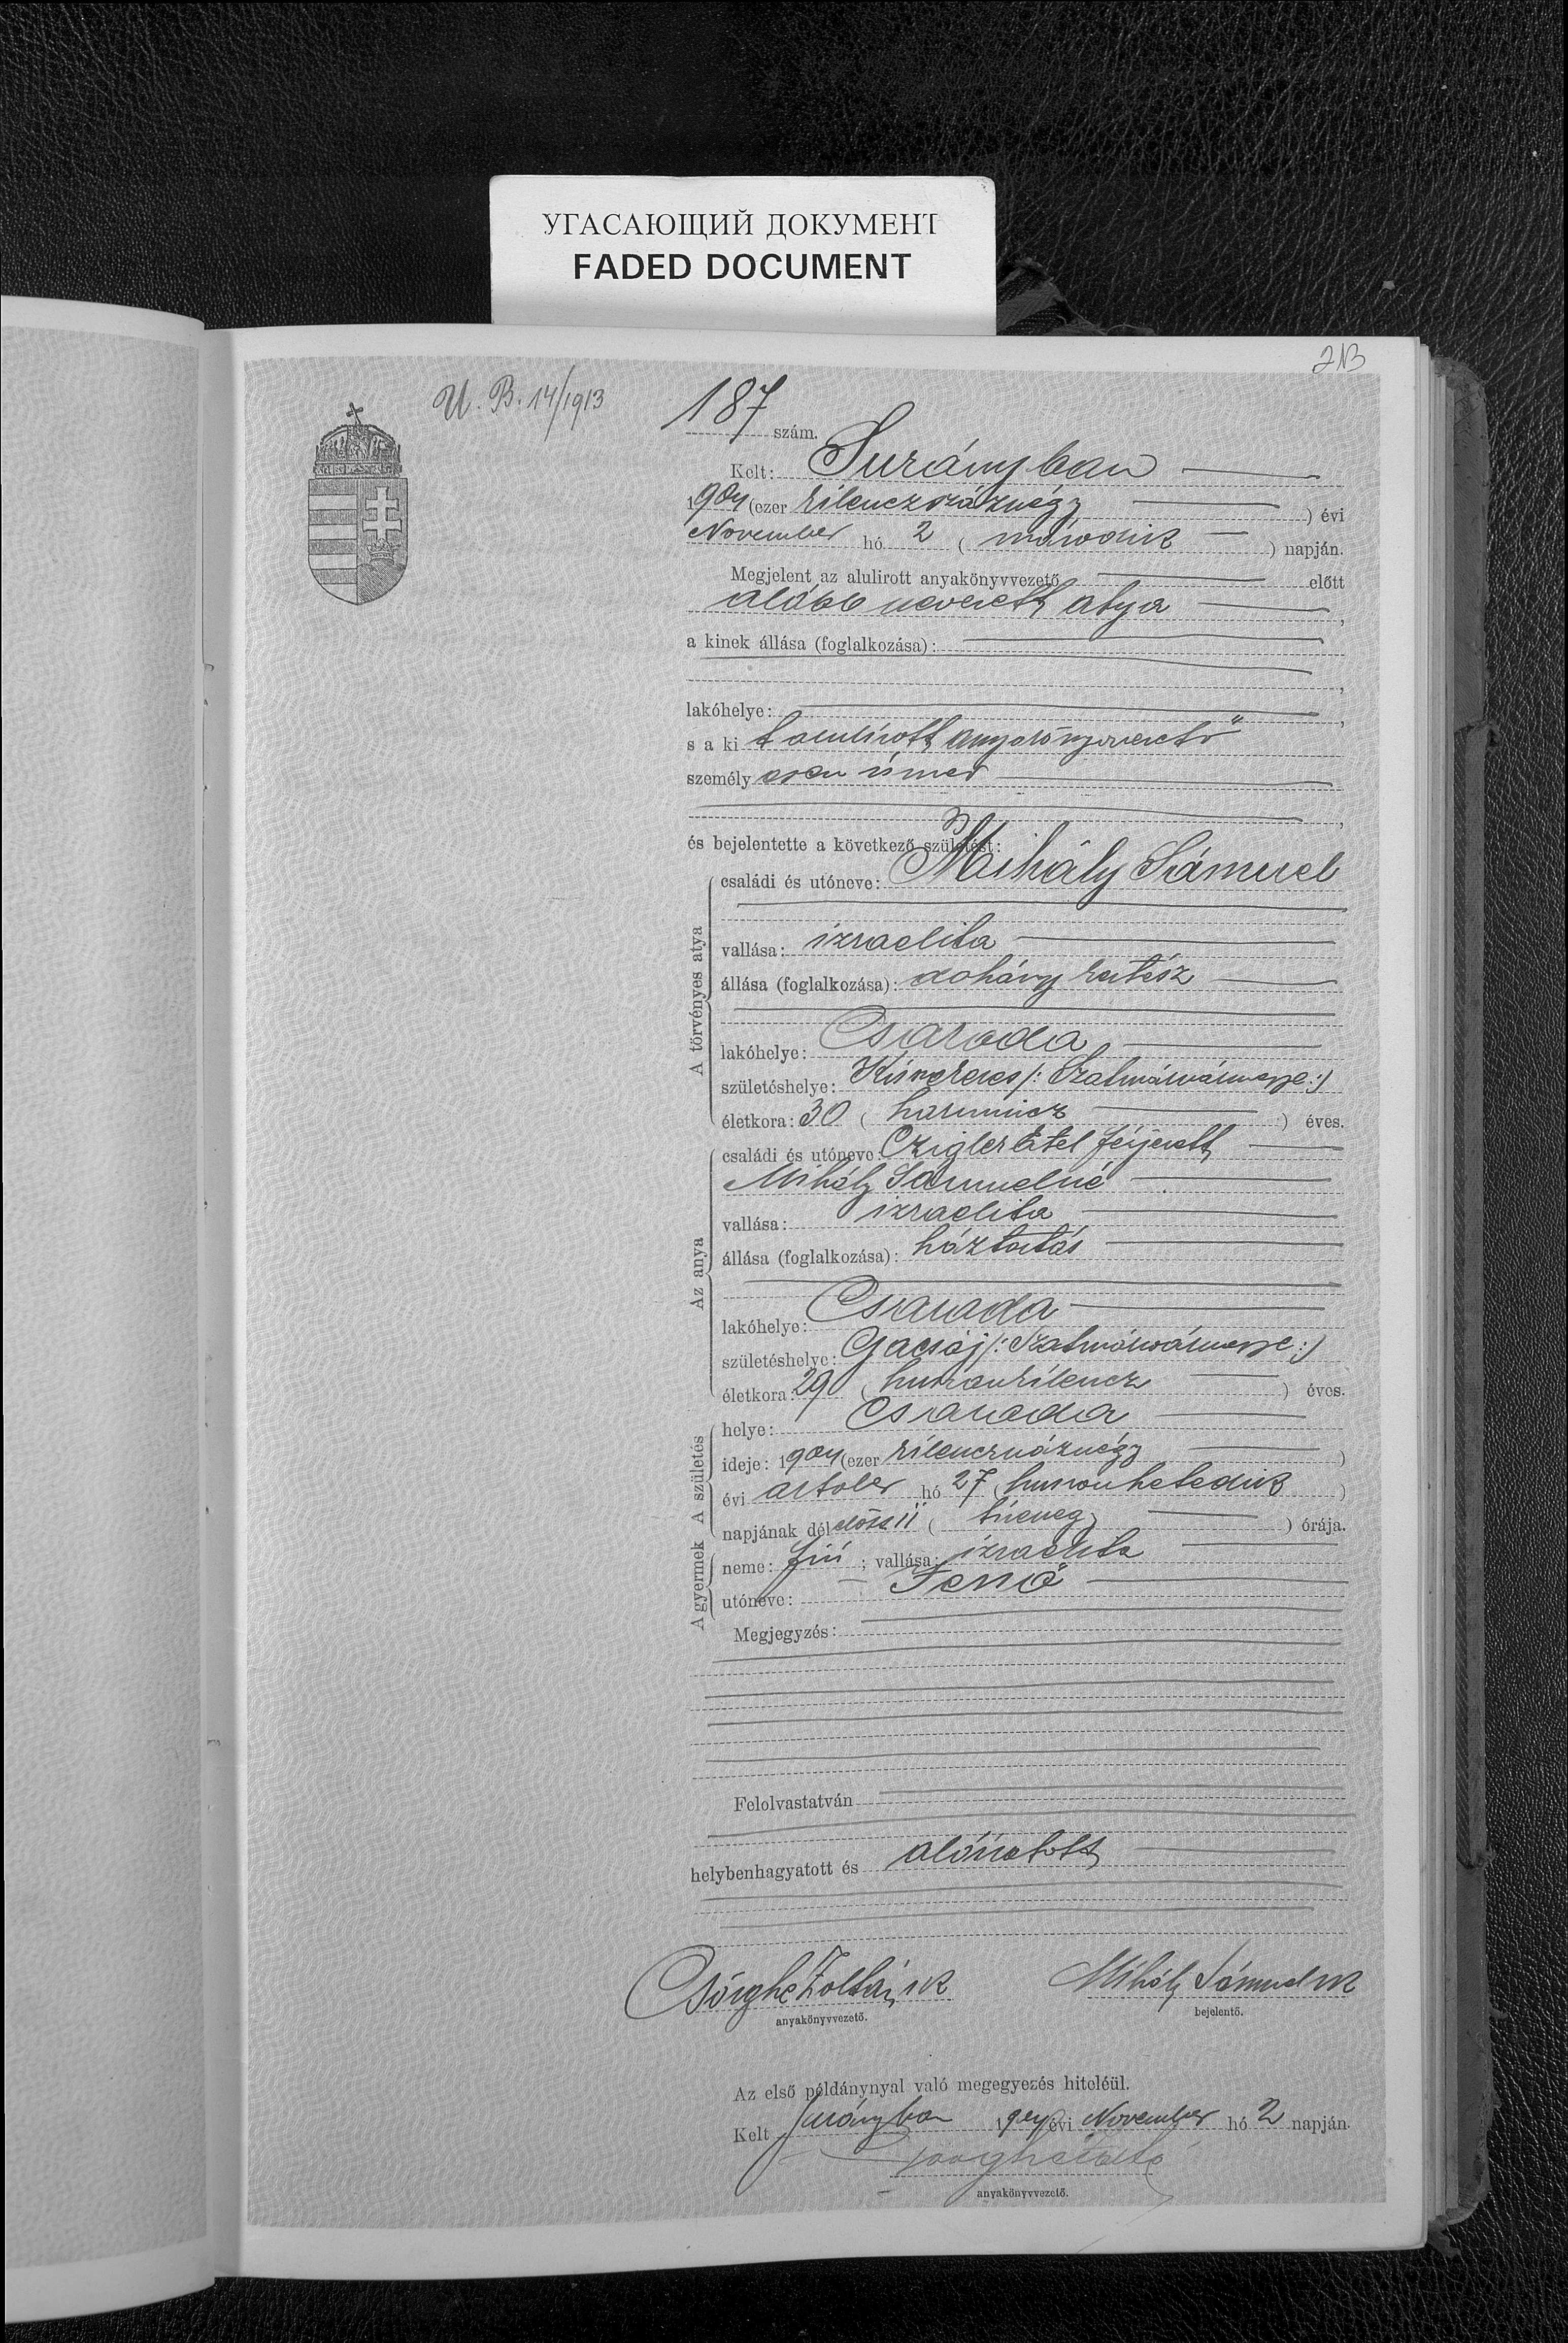 УГАСАЮЩИЙ ДОКУМЕНТ
FADED DOCUMENT
213
U. B. 14/1913
187 szám.
Kelt: Surányban
1904 (ezer kilenczszáznégy ) évi
November hó 2 ( második ) napján.
Megjelent az alulirott anyakönyvvezető előtt
alább nevezett atya ,
a kinek állása (foglalkozása):
,
lakóhelye: ,
s a ki t alulirott anyakönyvvezető
személy esen ismer
,
és bejelentette a következő születést:
A törvényes atya
családi és utóneve: Mihály Sámuel
vallása: izraelita
állása (foglalkozása): dohány kertész
lakóhelye: Csaroda
születéshelye: /: Szatmárvármegye :/
életkora: 30 ( harmincz ) éves.
Az anya
családi és utóneve: Czigler Etel férjezett
Mihály Sámuelné
vallása: izraelita
állása (foglalkozása): háztartás
lakóhelye: Csaroda
születéshelye: Gacsáj /: Szatmárvármegye :/
életkora: 29 ( huszonkilencz ) éves.
A születés
helye: Csaroda
ideje: 1904 (ezer kilenczszáznégy )
évi october hó 27 ( huszonhetedik )
napjának dél előtt 11 ( tizenegy ) órája.
A gyermek
neme: fiú ; vallása: izraelita
utóneve: Jenő
Megjegyzés:
Felolvastatván
helybenhagyatott és aláíratott
Csörghe Zoltán sk
anyakönyvvezető.
Mihály Sámuel sk
bejelentő.
Az első példánynyal való megegyezés hiteléül.
Kelt Surányban 1904 évi November hó 2 napján.
anyakönyvvezető.